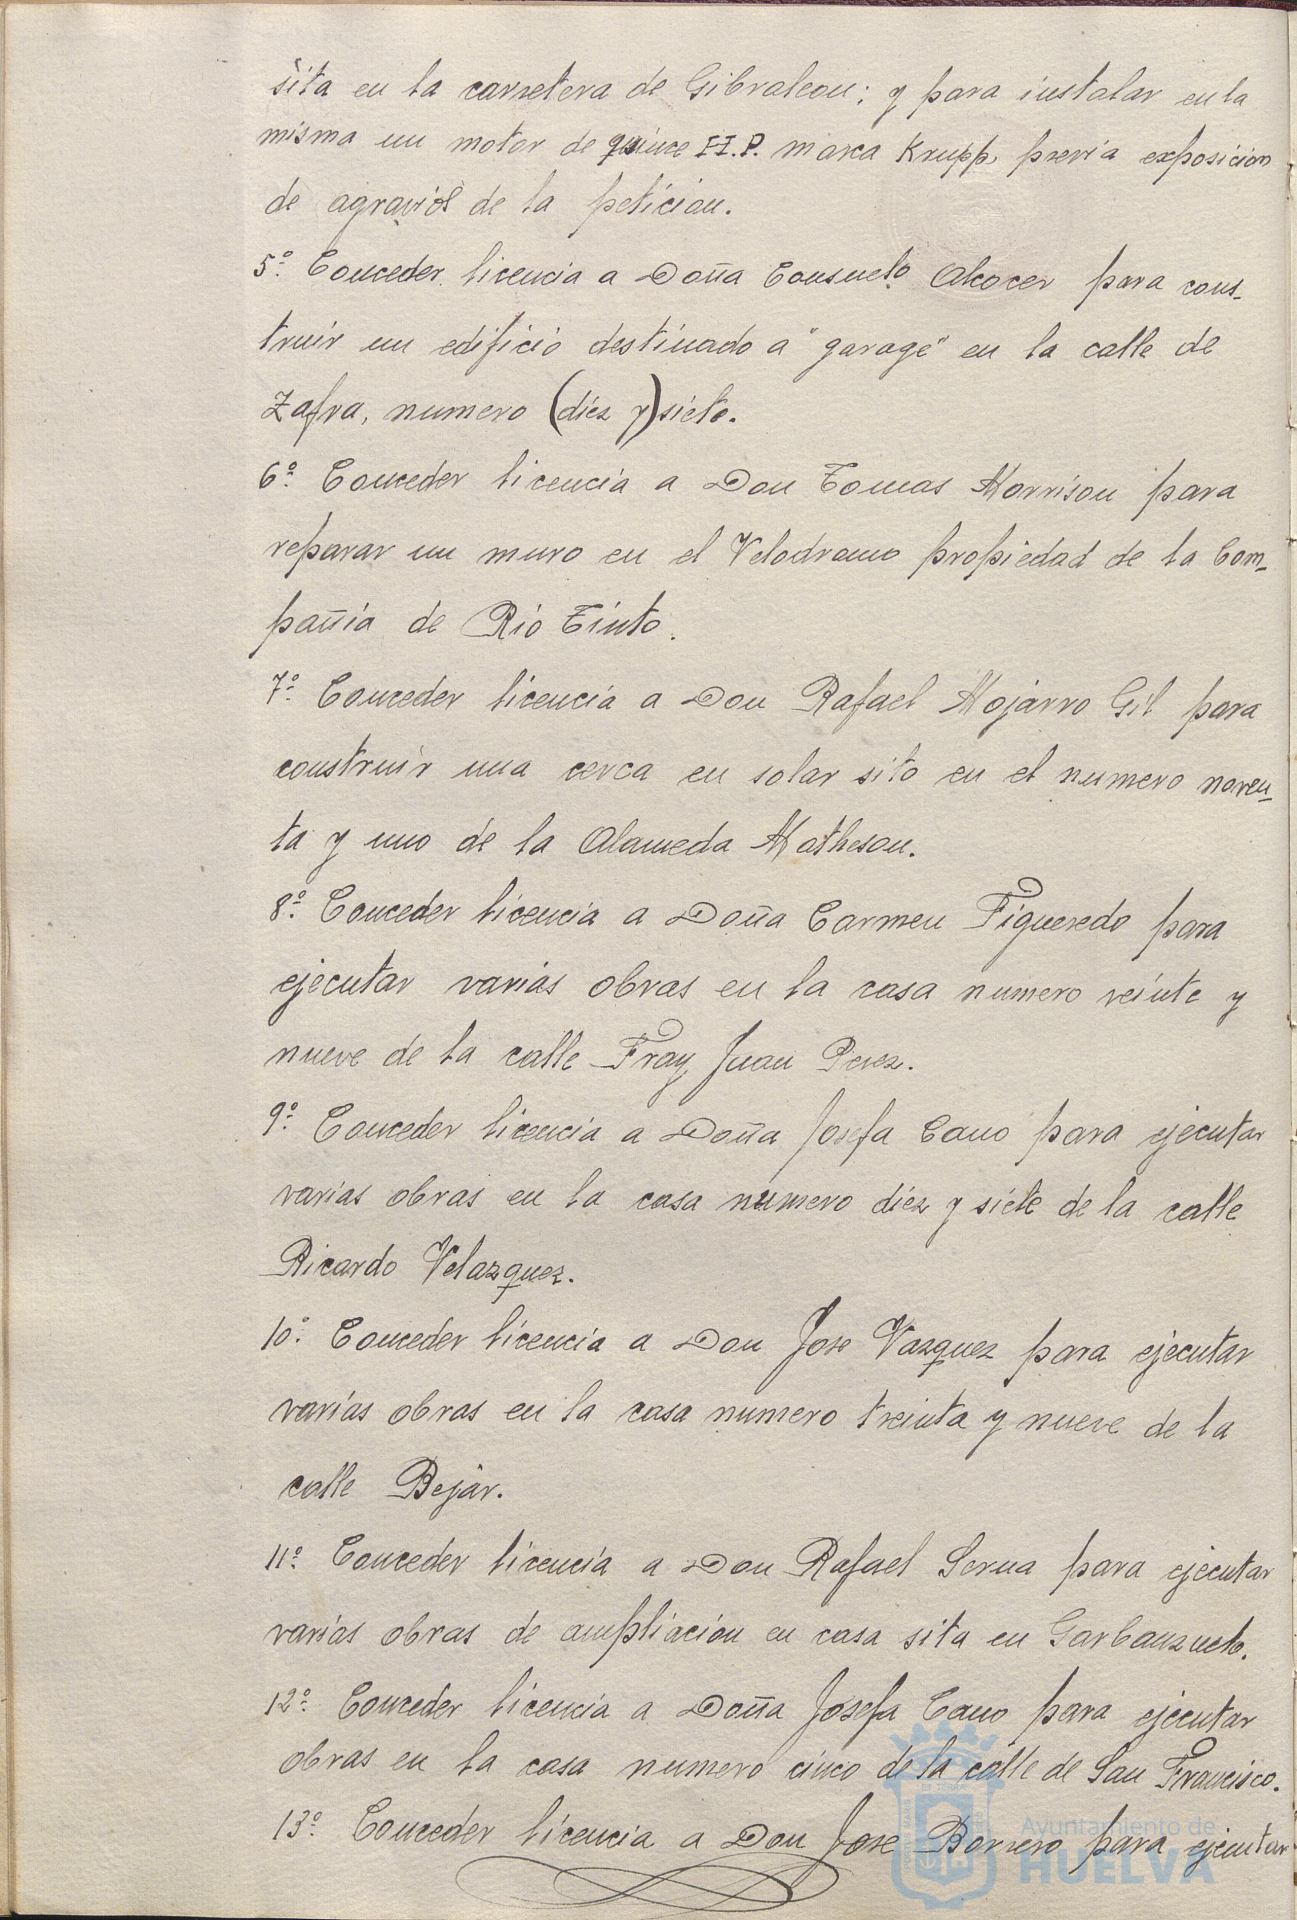 sita en la carretera de Gibraleon; y para instalar en la
misma un motor de quince H.P. marca Krupp, previa exposicion
de agravios de la peticion.
5º. Conceder licencia a Doña Consuelo Alcocer para cons-
truir un edificio destinado a "garage" en la calle de
Zafra, numero (diez y) siete.
6º. Conceder licencia a Don Tomas Morrison para
reparar un muro en el Velodromo propiedad de la Com-
pañia de Rio Tinto.
7º. Conceder licencia a Don Rafael Mojarro Gil para
construir una cerca en solar sito en el numero noven-
ta y uno de la Alameda Matheson.
8º. Conceder licencia a Doña Carmen Figueredo para
ejecutar varias obras en la casa numero veinte y
nueve de la calle Fray Juan Perez.
9º. Conceder licencia a Doña Josefa Cano para ejecutar
varias obras en la casa numero diez y siete de la calle
Ricardo Velazquez.
10º. Conceder licencia a Don Jose Vazquez para ejecutar
varias obras en la casa numero treinta y nueve de la
calle Bejar.
11º. Conceder licencia a Don Rafael Serna para ejecutar
varias obras de ampliación en casa sita en Garbanzuelo.
12º. Conceder licencia a Doña Josefa Cano para ejecutar
obras en la casa numero cinco de la calle de San Francisco.
13º. Conceder licencia a Don Jose Borrero para ejecutar
Ayuntamiento de
HUELVA